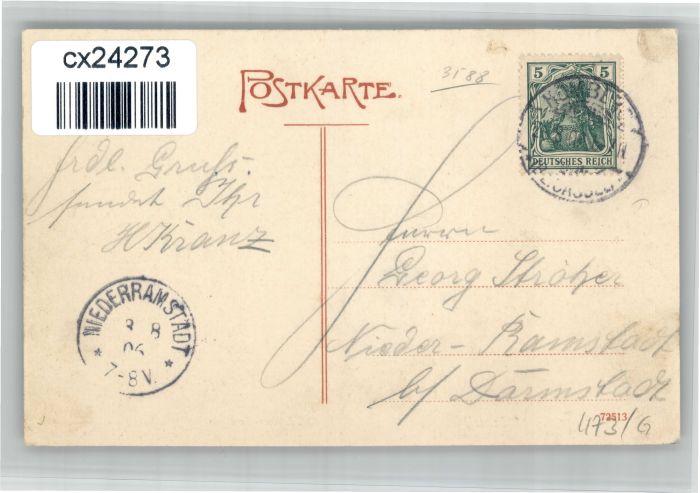 cx24273
POSTKARTE.
3588
5 5
DEUTSCHES REICH
frdl. Gruß.
sendet Ihr
H Kranz
Herrn
Georg Ströher
Nieder-Ramstadt
b/ Darmstadt
NIEDERRAMSTADT
3 8
06
7-8V.
72513
473/G